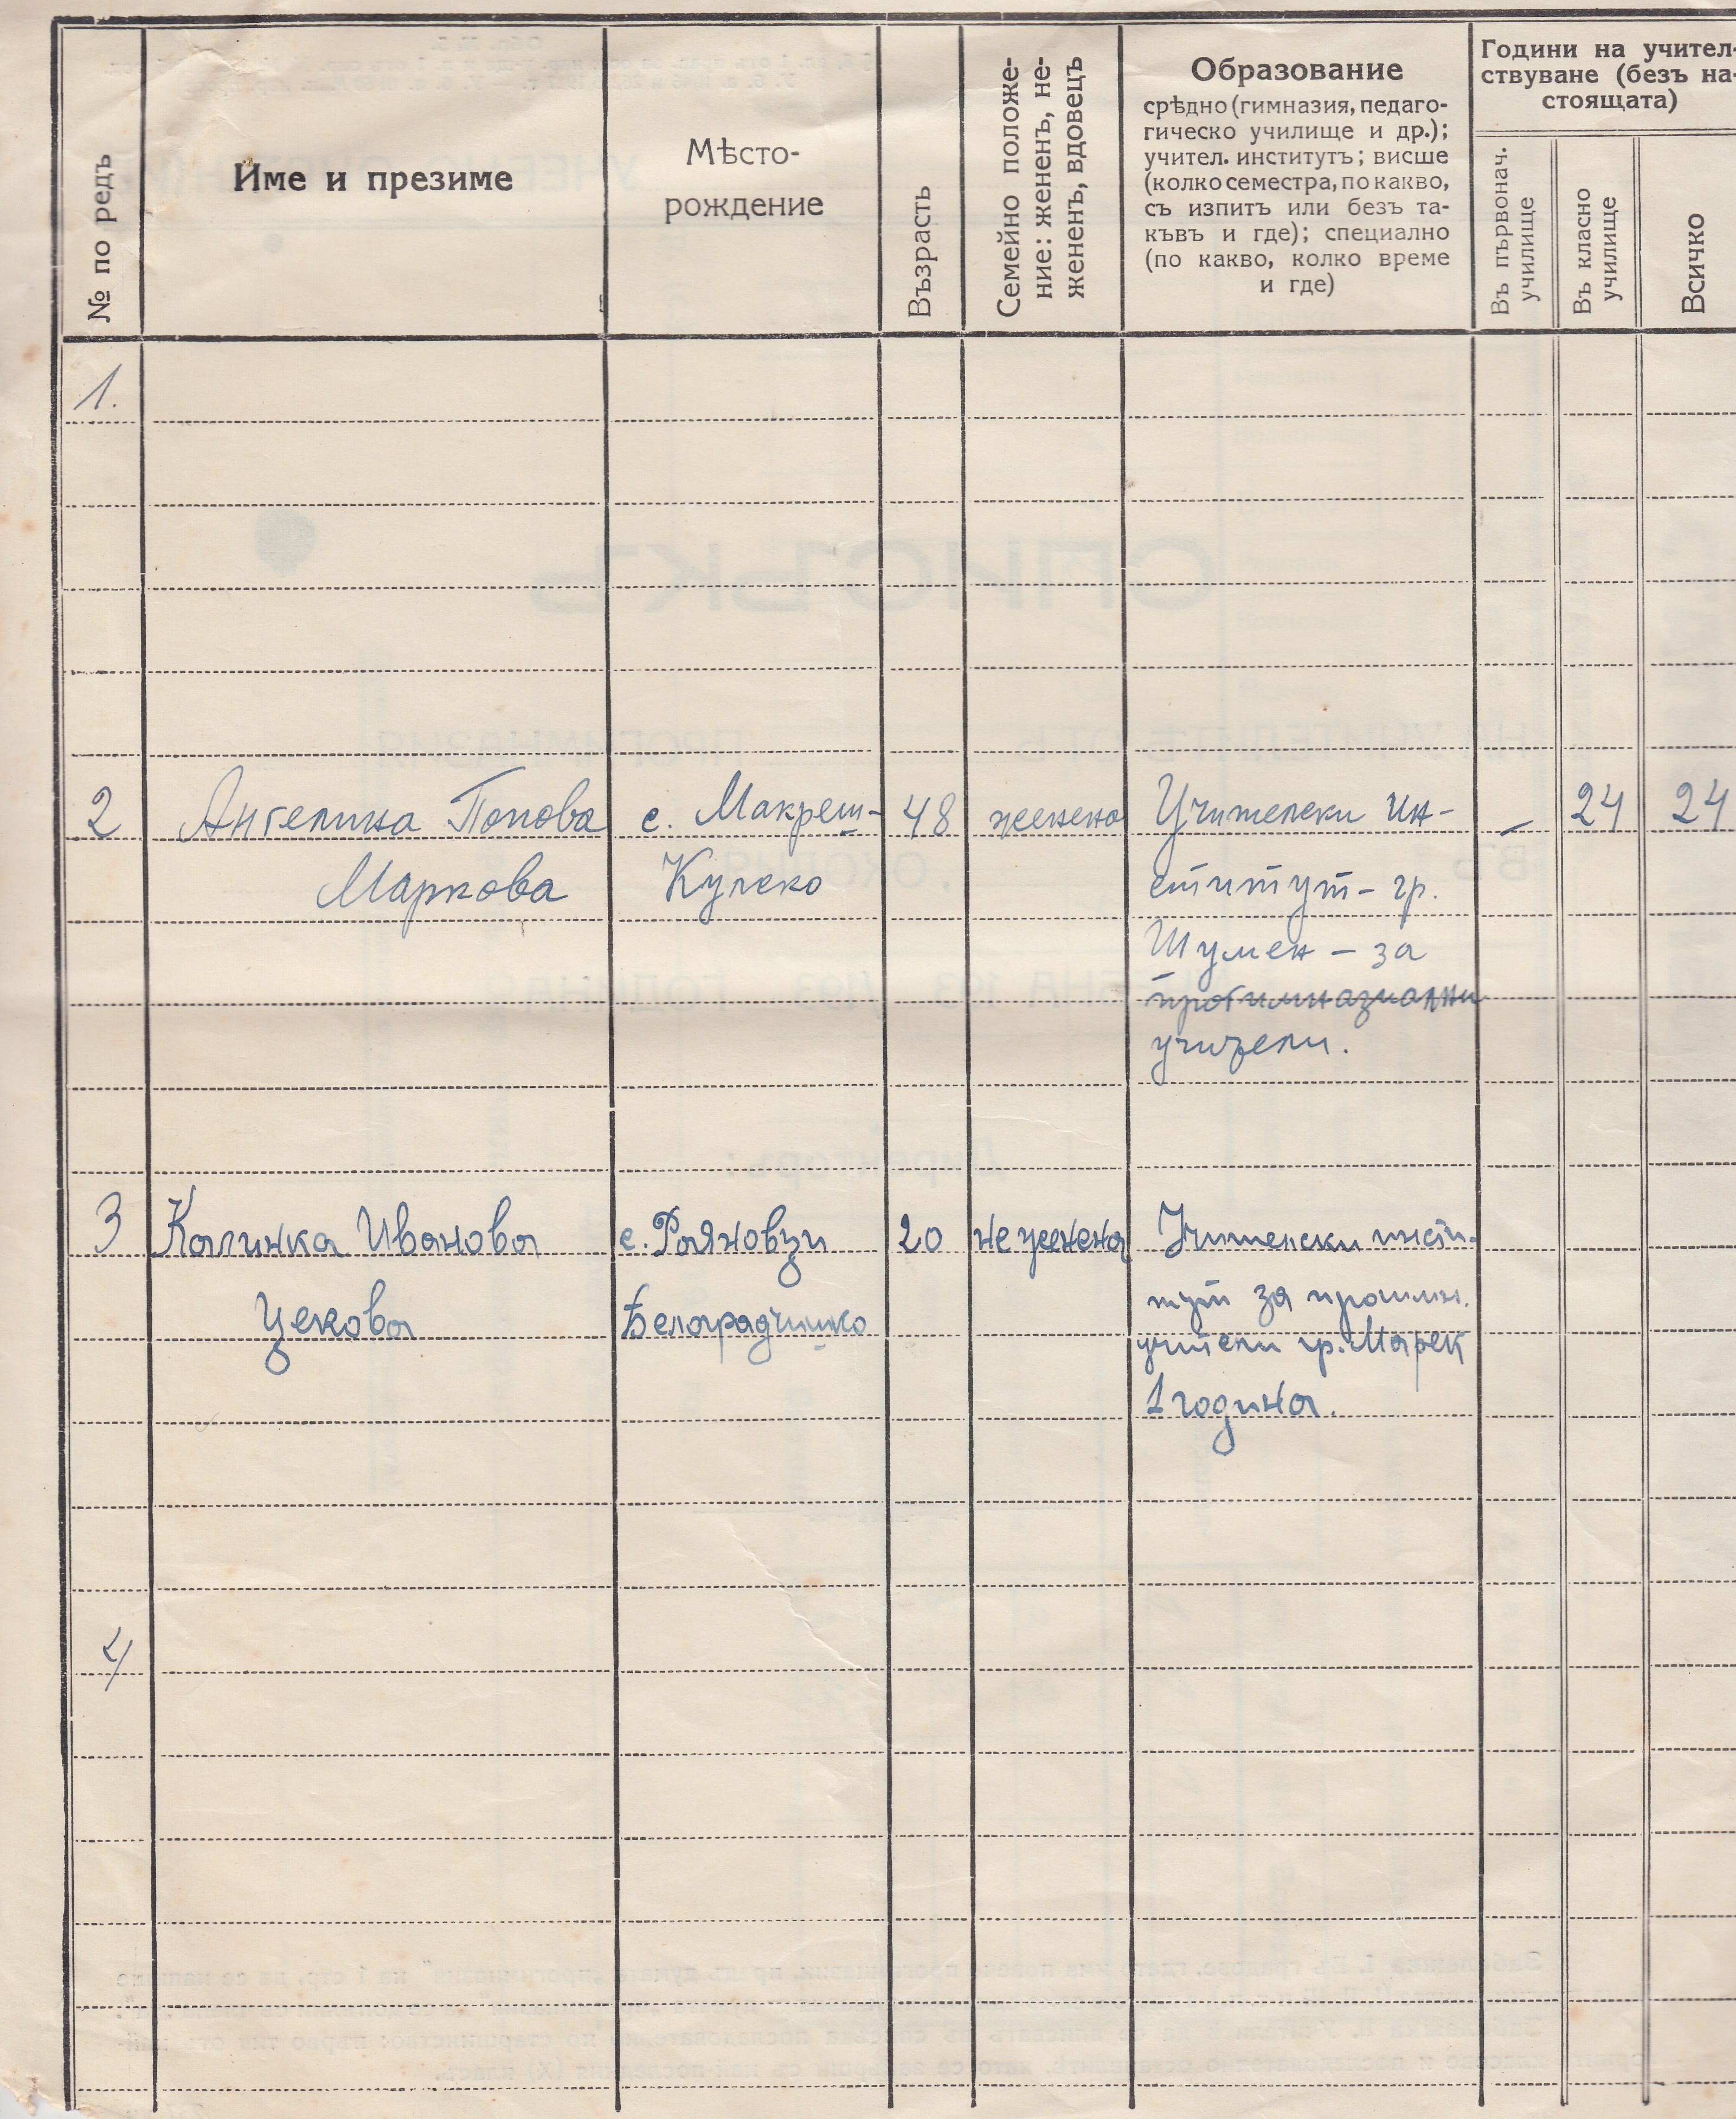 № по редъ
Име и презиме
Мѣсто-
рождение
Възрасть
Семейно положе-
ние: жененъ, не-
жененъ, вдовецъ
Образование
срѣдно (гимназия, педаго-
гическо училище и др.);
учител. институтъ; висше
(колко семестра, по какво,
съ изпитъ или безъ та-
къвъ и где); специално
(по какво, колко време
и где)
Години на учител-
ствуване (безъ на-
стоящата)
Въ първонач.
училище
Въ класно
училище
Всичко
1.
2 Ангелина Попова с. Макреш- 48 женена Учителски ин- - 24 24
Маркова Кулско ститут - гр.
Шумен - за
прогимназиални
учители.
3 Калинка Иванова с. Рояновци 20 неженена Учителски инсти-
Цекова Белоградчишко тут за прогимн.
учители гр. Марек
1 година.
4